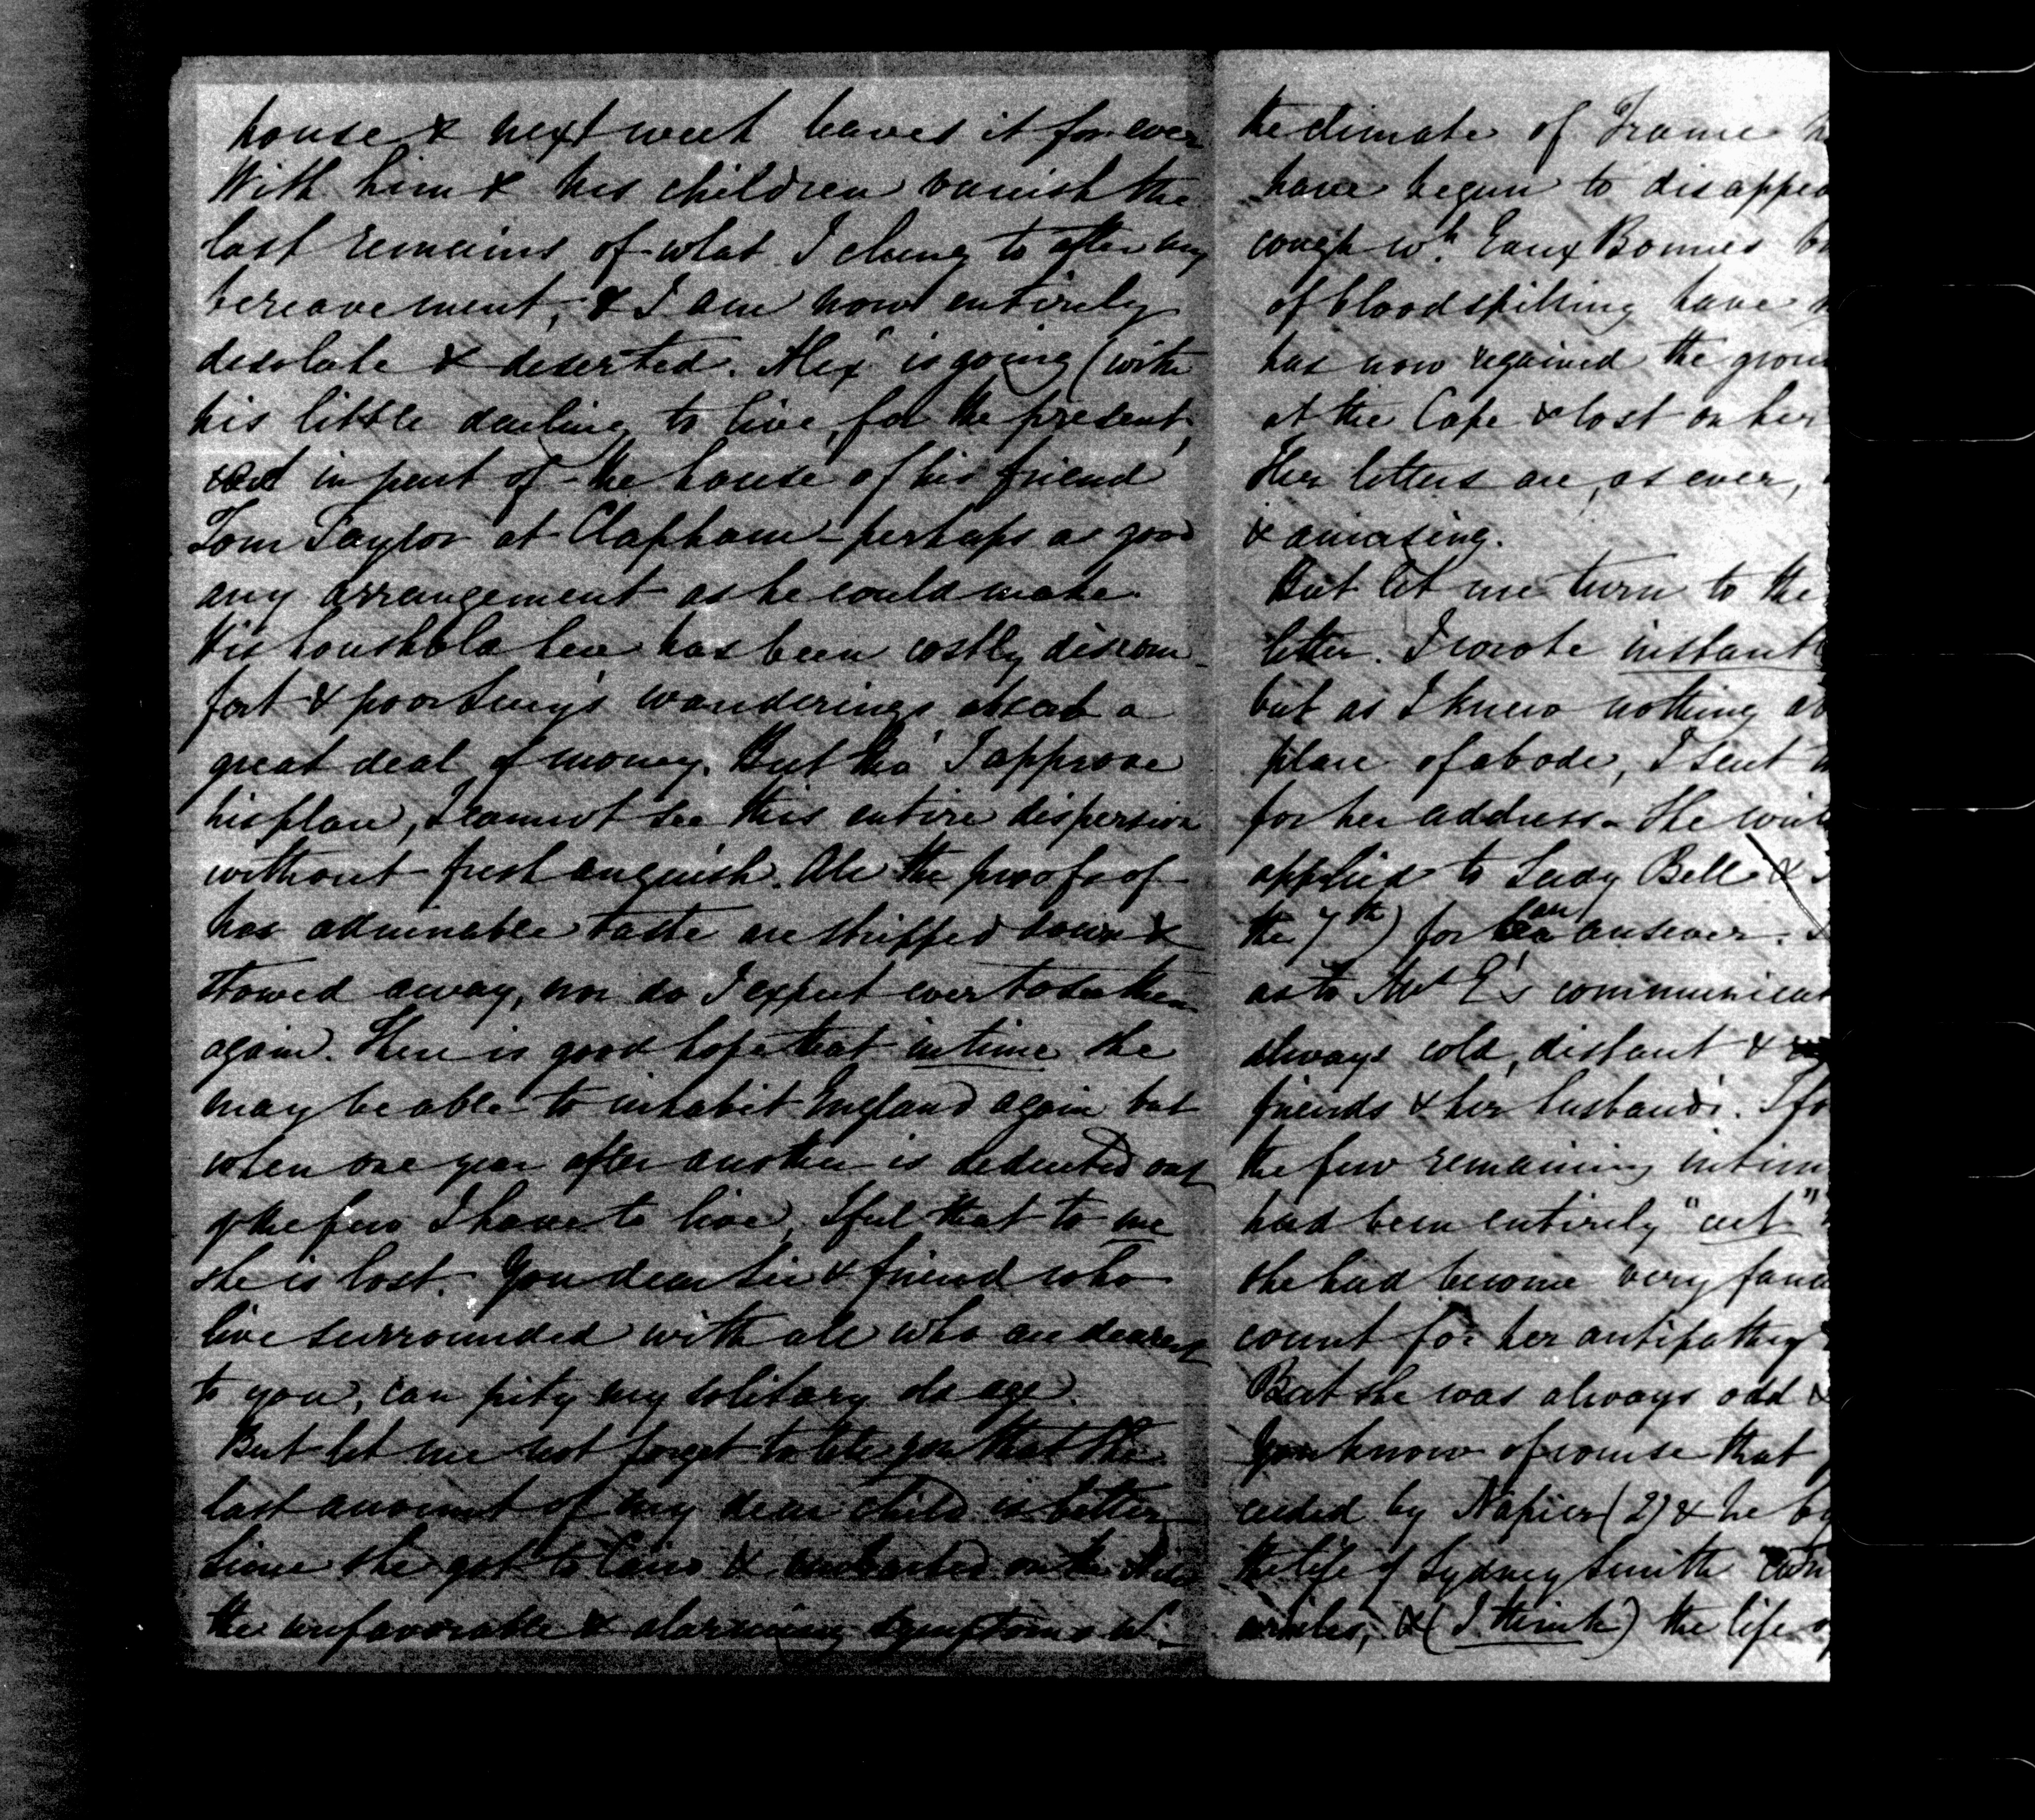 house & next week leaves it for ever
With him & his children vanish the
last remains of what I clung to after my
bereavement, & I am now entirely
desolate & deserted. Alex is going (with
his little darling to live, for the present,
in part of the house of his friend
Tom Taylor at Clapham - perhaps as good
any arrangement as he could make.
His houshold here has been costly discom-
fort & poor Lucy's wanderings absorb a
great deal of money. But tho' I approve
his plan, I cannot see this entire dispersion
without fresh anguish. All the proofs of
her admirable taste are stripped down &
stowed away, nor do I expect ever to see them
again. There is good hope that in time she
may be able to inhabit England again but
when one year after another is deducted out
of the few I have to live, I feel that to me
she is lost. You dear Sir & friend who
live surrounded with all who are dearest
to you, can pity my solitary old age.
But let me not forget to tell you that the
last account of my dear child is better
since she got to Cairo & embarked on the Nile
the unfavorable & alarming symptoms wh.
the climate of France
have begun to disappea
cough wh. Eaux Bonnes
of bloodspitting have
has now regained the grou
at the Cape & lost on her
Her letters are, as ever,
& amusing.
But let me turn to the
letter. I wrote instantl
but as I knew nothing ab
place of abode, I sent
for her address. He
applied to Lady Bell &
the 7th) for an answer.
as to Mrs E's communicat
always cold, distant &
friends & her husband's. I
the few remaining intim
had been entirely "cut"
she had become very fanc
count for her antipathy
But she was always odd &
You know of course that
ceeded by Napier (2) & he
the life of Sydney Smith
articles, & (I think) the life of